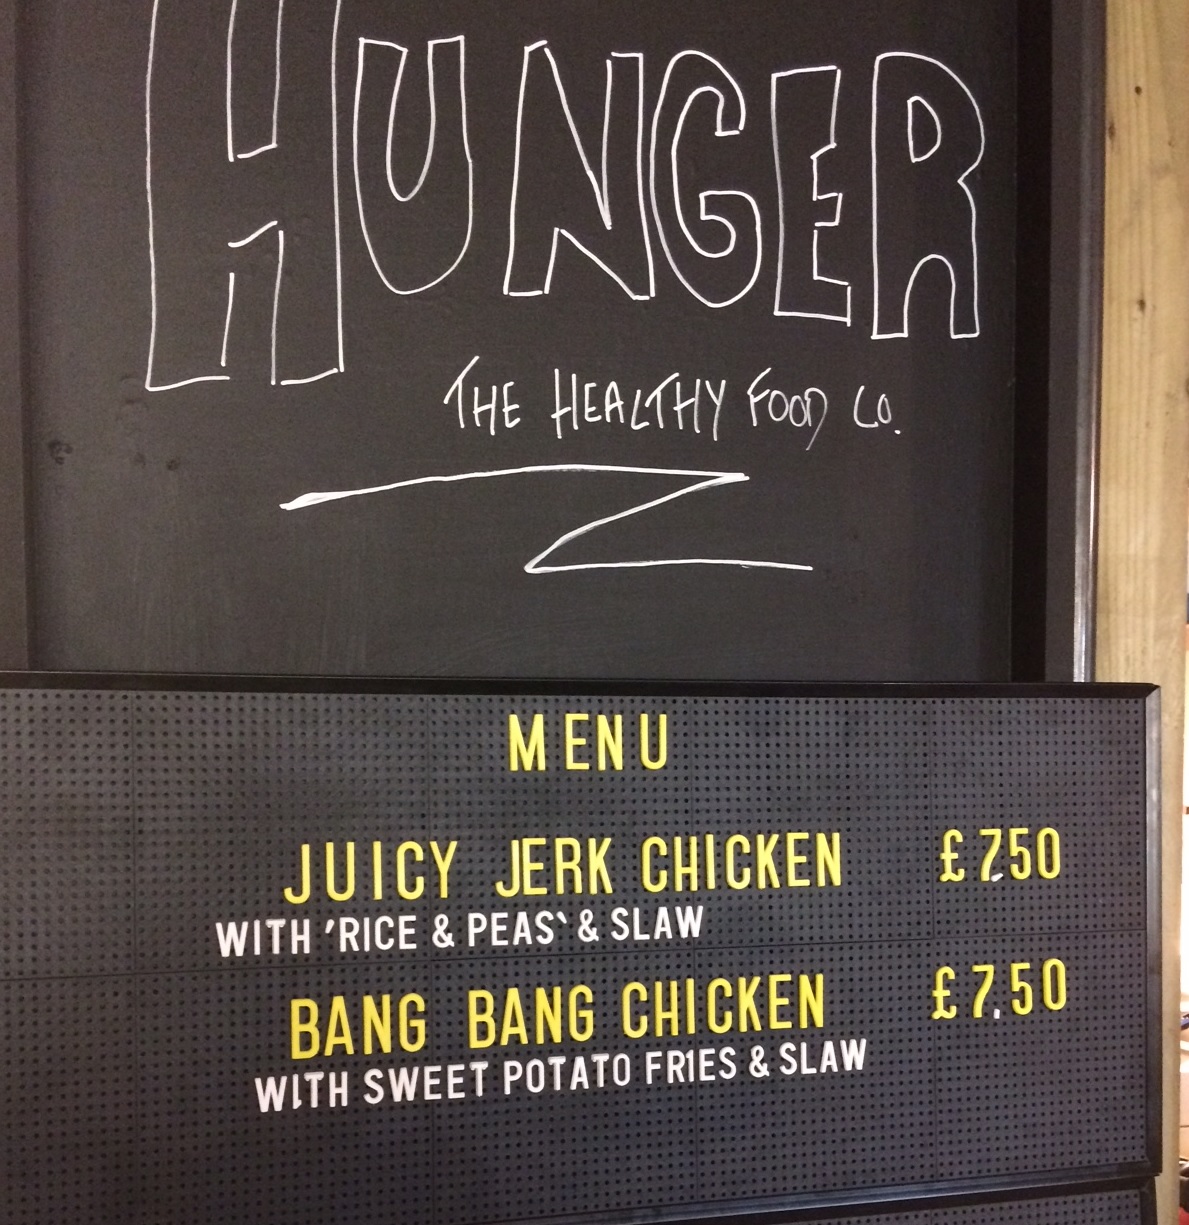 HUNGER
THE HEALTHY FOOD CO.
MENU
JUICY JERK CHICKEN £7.50
WITH 'RICE & PEAS` & SLAW
BANG BANG CHICKEN £7.50
WITH SWEET POTATO FRIES & SLAW